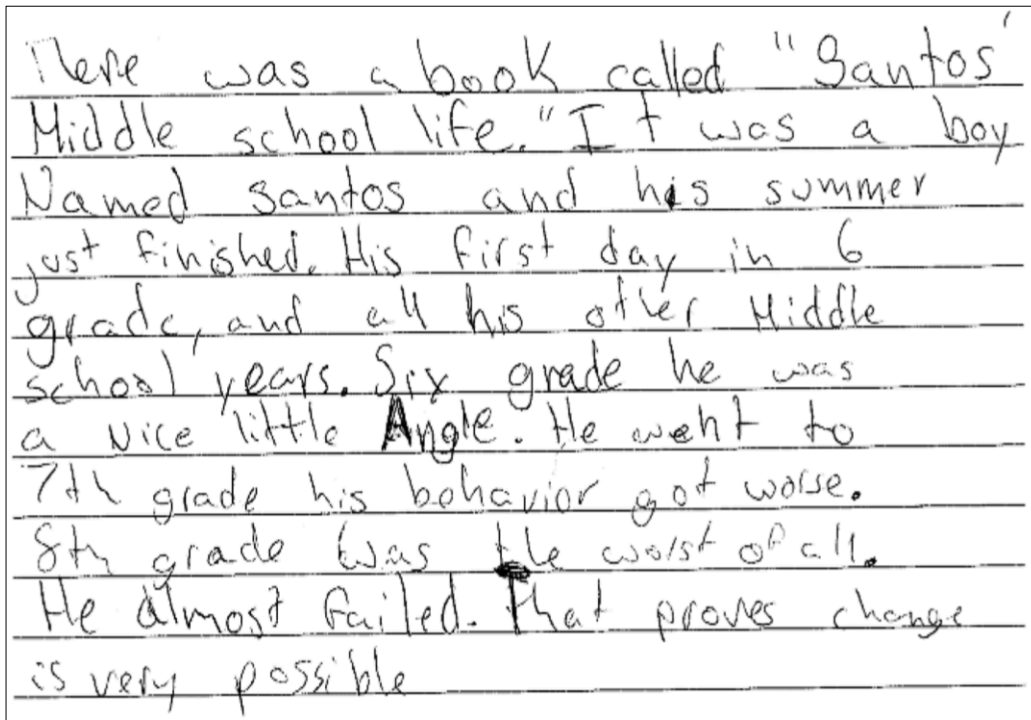 There was a book called "Santos'
Middle school life." It was a boy
Named santos and his summer
just finished. His first day in 6
grade, and all his other Middle
school years. Six grade he was
a Nice little Angle. He went to
7th grade his behavior got worse.
8th grade was the worst of all.
He almost failed. that proves change
is very possible